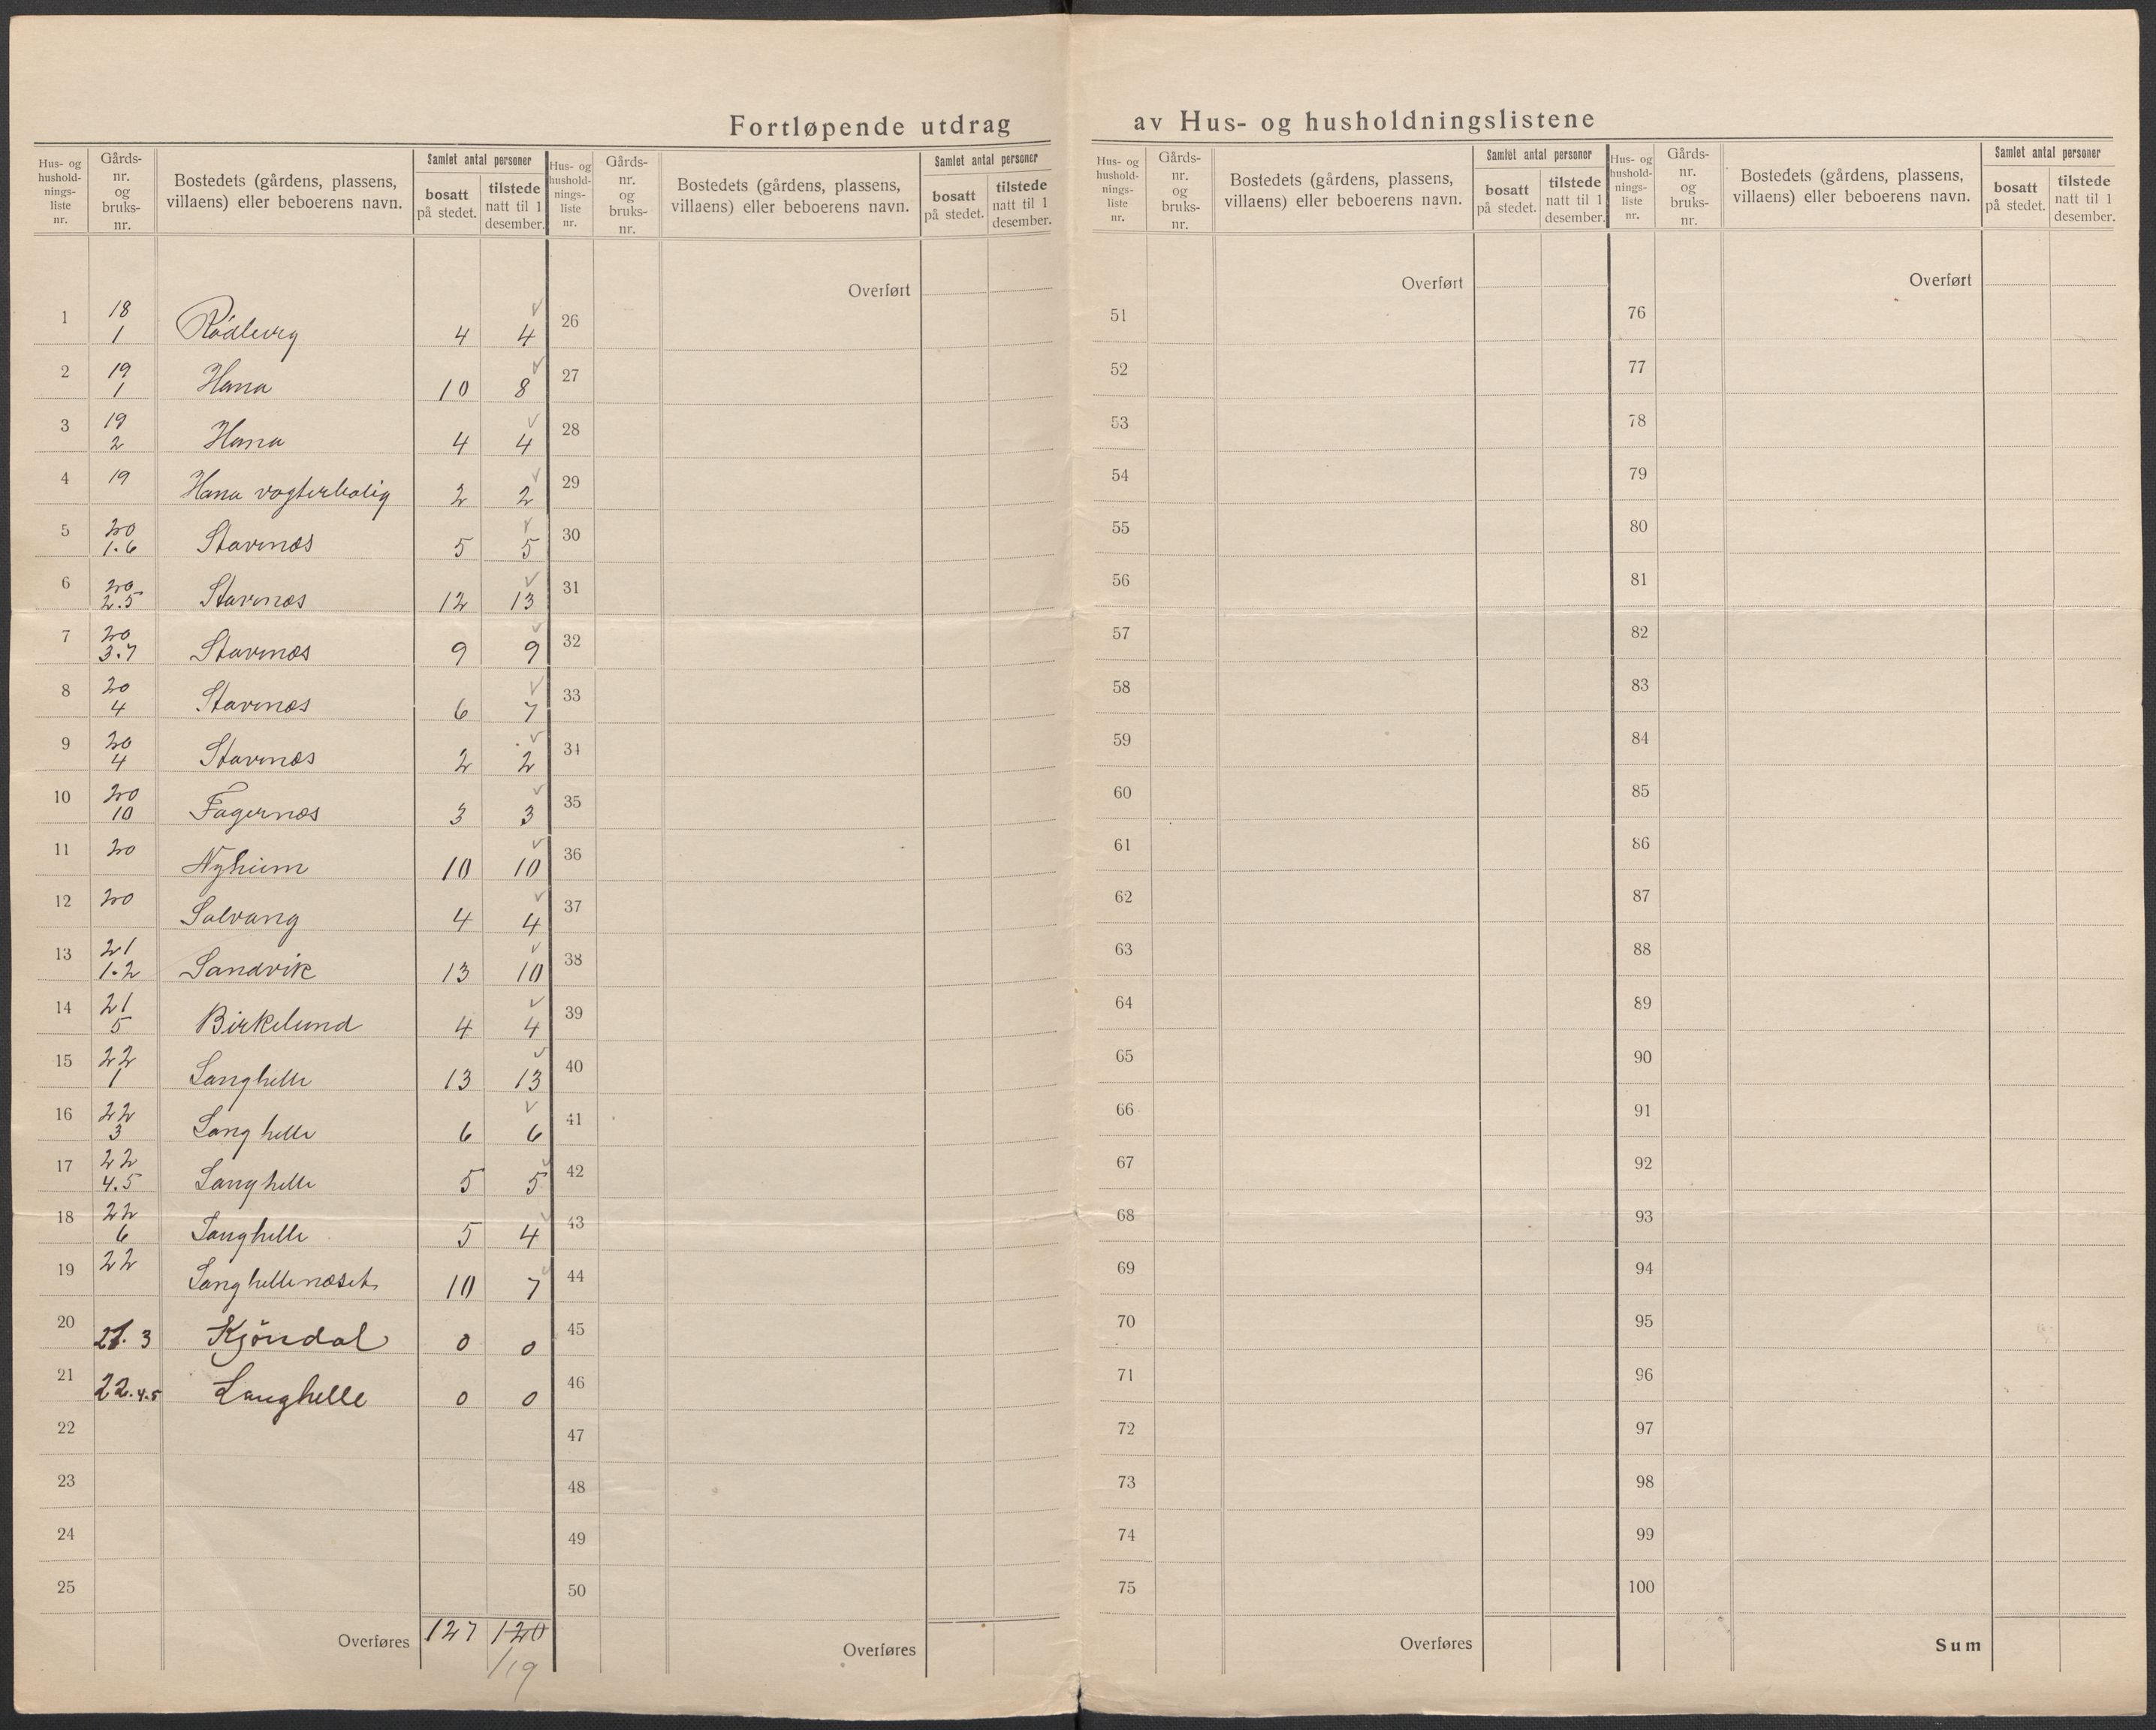 Fortløpende utdrag av Hus- og husholdningslistene
Hus- og hushold-nings-liste nr. Gårds-nr. og bruks-nr. Bostedets (gårdens, plassens, villaens) eller beboerens navn. Samlet antal personer bosatt på stedet. tilstede natt til 1 desember.
1 18 1 Rödberg 4 4
2 19 1 Hana 10 8
3 19 2 Hana 4 4
4 19 Hana vogterbolig 2 2
5 20 1.6 Stavenæs 5 5
6 20 2.5 Stavenæs 12 13
7 20 3.7 Stavenæs 9 9
8 20 4 Stavenæs 6 7
9 20 4 Stavenæs 2 2
10 20 10 Fagernæs 3 3
11 20 Nyheim 10 10
12 20 Solvang 4 4
13 21 1.2 Sandvik 13 10
14 21 5 Birkelund 4 4
15 22 1 Langhelle 13 13
16 22 3 Langhelle 6 6
17 22 4.5 Langhelle 5 5
18 22 6 Langhelle 5 4
19 22 Langhellenæset 10 7
20 21.3 Kjöndal 0 0
21 22.4.5 Langhelle 0 0
22
23
24
25
Overføres 127 120
119
Hus- og hushold-nings-liste nr. Gårds-nr. og bruks-nr. Bostedets (gårdens, plassens, villaens) eller beboerens navn. Samlet antal personer bosatt på stedet. tilstede natt til 1 desember.
Overført
26
27
28
29
30
31
32
33
34
35
36
37
38
39
40
41
42
43
44
45
46
47
48
49
50
Overføres
Hus- og hushold-nings-liste nr. Gårds-nr. og bruks-nr. Bostedets (gårdens, plassens, villaens) eller beboerens navn. Samlet antal personer bosatt på stedet. tilstede natt til 1 desember.
Overført
51
52
53
54
55
56
57
58
59
60
61
62
63
64
65
66
67
68
69
70
71
72
73
74
75
Overføres
Hus- og hushold-nings-liste nr. Gårds-nr. og bruks-nr. Bostedets (gårdens, plassens, villaens) eller beboerens navn. Samlet antal personer bosatt på stedet. tilstede natt til 1 desember.
Overført
76
77
78
79
80
81
82
83
84
85
86
87
88
89
90
91
92
93
94
95
96
97
98
99
100
Sum